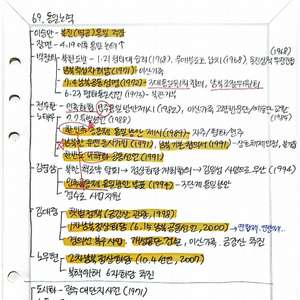 69. 통일노력
이승만 - 북진(멸공) 통일 주장
장면 - 4.19 이후 통일 논의↑ (1968)
박정희 - 북한 도발 - 1.21 청와대 습격(1968), 푸에블로호 납치(1968), 울진삼척 무장공비
남북적십자회담(1971) - 이산가족
7.4 남북공동성명(1972) -
6.23 평화통일선언(1973) -
전두환 - 민족화합 민주통일방안제시(1982), 이산가족 고향방문
노태우 - 7.7 특별선언(1988)
한민족 공동체 통일방안 제시(1989) - 자주/평화/민주
남북한 유엔 동시가입(1991), 남북기본합의서(1991) -
한반도 비핵화 공동선언(1991)
김영삼 - 북한 → 정상회담 → 김일성 사망으로 무산(1994)
민족공동체 통일방안 발표(1994) - 3단계 통일방안
경수로 사업 지원
김대중 - 햇볕정책(금강산 관광, 1998)
1차 남북정상회담(6.15 남북공동선언, 2000) -
경의선 복구사업, 개성공단 건설, 이산가족, 금강산 추진
노무현 - 2차 남북정상회담(10.4 선언, 2007)
북핵위기 6자회담 추진
도시화 - 광주 대단지 사건(1971)